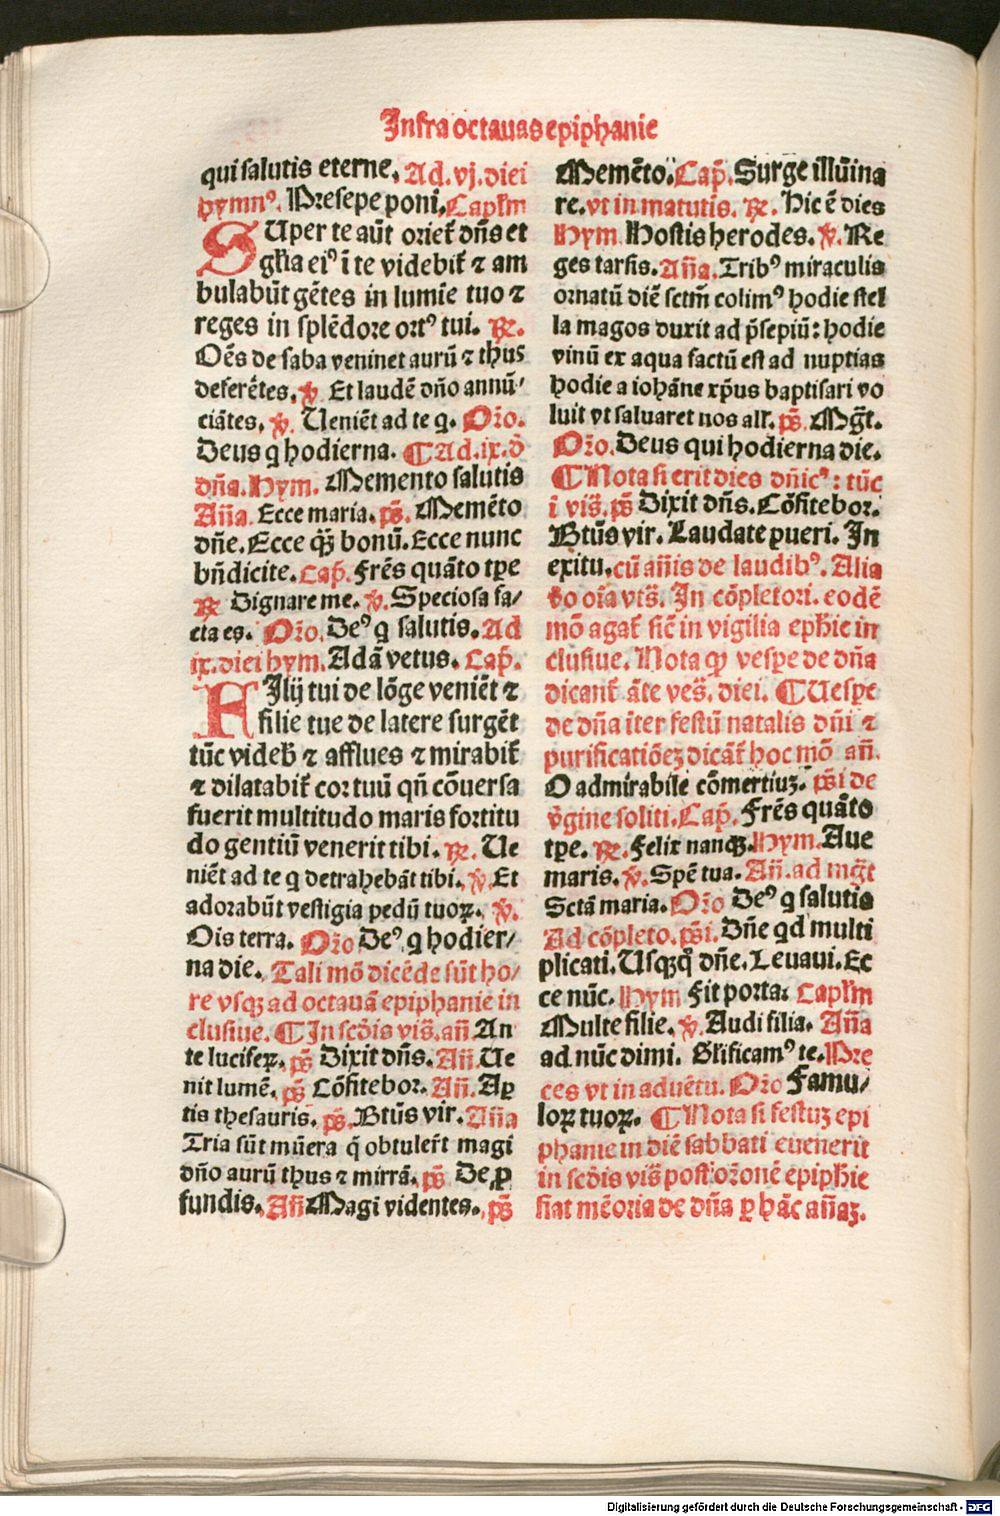 Infra octauas epiphanie
qui salutis eterne. Ad. vj. diei
hymnꝰ. Presepe poni. Caplm̄
SUper te aūt orieť dn̄s et
gl̄ia eiꝰ ī te videbiť ⁊ am
bulabūt gētes in lumīe tuo ⁊
reges in splēdore ortꝰ tui. ℞.
Oēs de saba veninet aurū ⁊ thus
deferētes. ℣ Et laudē dn̄o annū/
ciātes. ℣. Ueniēt ad te q. Or̄o.
Deus q hodierna. ¶ Ad. ix. d̄
dn̄a. Hym. Memento salutis
Añа. Ecce maria. ps̄. Memēto
dn̄e. Ecce q̄ꝫ bonū. Ecce nunc
bn̄dicite. Cap̄. Frēs quāto tꝑe
℞ Dignare me. ℣. Speciosa fa/
cta es. Or̄o. Deꝰ q salutis. Ad
ix. diei hym. Adā vetus. Cap̄.
FIlij tui de lōge veniēt ⁊
filie tue de latere surgēt
tūc videb̄ ⁊ afflues ⁊ mirabiť
⁊ dilatabiť cor tuū qn̄ cōuersa
fuerit multitudo maris fortitu
do gentiū venerit tibi. ℞. Ue
niēt ad te q detrahebāt tibi. ℣. Et
adorabūt vestigia pedū tuoꝝ. ℣.
Ois terra. Or̄o Deꝰ q hodier/
na die. Tali mō dicēde sūt ho/
re vsqꝫ ad octauā epiphanie in
clusiue. ¶ In scd̄is vis̄. an̄. An
te luciferꝫ. ps̄ Dixit dn̄s. An̄. Ue
nit lumē. ps̄ Cōfitebor. An̄. Aꝑ
tis thesauris. ps̄. Btūs vir. An̄a
Tria sūt mūera q̄ obtuler̄t magi
dn̄o aurū thus ⁊ mirrā. ps̄ De ꝓ
fundis. An̄ Magi videntes. ps̄
Memēto. Cap̄. Surge illūina
re. vt in matutis̄. ℞. Hic ē dies
Hym Hostis herodes. ℣. Re
ges tarsis. An̄a. Tribꝰ miraculis
ornatū diē sctm̄ colimꝰ hodie stel
la magos duxit ad p̄sepiū: hodie
vinū ex aqua factū est ad nuptias
hodie a iohāne xp̄us baptisari vo
luit vt saluaret nos all̄. ps̄. Mḡt.
Or̄o. Deus qui hodierna die.
¶ Nota si erit dies dn̄icꝰ: tūc
i vis̄. ps̄ Dixit dn̄s. Cōfitebor.
Btūs vir. Laudate pueri. In
exitu. cū an̄is de laudibꝰ. Alia
do oīa vts̄. In cōpletori. eodē
mō agať sic̄ in vigilia eph̄ie in
clusiue. Nota ꝙ vespe de dn̄a
dicant̄ āte ves̄. diei. ¶ Uespe
de dn̄a īter festū natalis dn̄i ⁊
purificatiōeꝫ dicāť hoc mō an̄.
O admirabile cōmertiuꝫ. ps̄i de
v̄gine soliti. Cap̄. Frēs quāto
tꝑe. ℞. Felix nanqꝫ. Hym. Aue
maris. ℣. Spē tua. An̄. ad mḡt
Sctā maria. Or̄o Deꝰ q salutis
Ad cōpleto. ps̄i. Dn̄e qd multi
plicati. Usqꝫq̄ dn̄e. Leuaui. Ec
ce nūc. Hym Fit porta. Caplm̄
Multe filie. ℣. Audi filia. An̄a
ad nūc dimi. Glificamꝰ te. Pre
ces vt in aduētu. Or̄o Famu/
loꝝ tuoꝝ. ¶ Nota si festuꝫ epi
phanie in diē sabbati euenerit
in scd̄is vis̄ post or̄onē epiph̄ie
fiat mēoria de dn̄a ꝑ hāc an̄aꝫ.
Digitalisierung gefördert durch die Deutsche Forschungsgemeinschaft - DFG